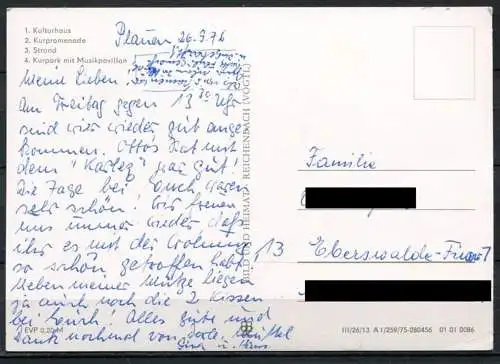 1. Kulturhaus
2. Kurpromenade
3. Strand
4. Kurpark mit Musikpavillon
Plauen 26.9.76
Meine Lieben.
Am Freitag gegen 13 Uhr
sind wir wieder gut ange
kommen. Ottos hat mit
dem "
" gut!
Die Tage bei Euch waren
sehr schön! Wir freuen
uns immer wieder daß
ihr es mit der Wohnung
so schön getroffen habt
Neben meiner Mütze liegen
ja auch noch die 2 Kissen
bei Euch! Alles gute und
Dank nochmal von
u.
BILD UND HEIMAT REICHENBACH (VOGTL)
Familie
13 Eberswalde-Finow 1
EVP 0,20 M
III/26/13 A 1/259/75-080456 01 01 0086